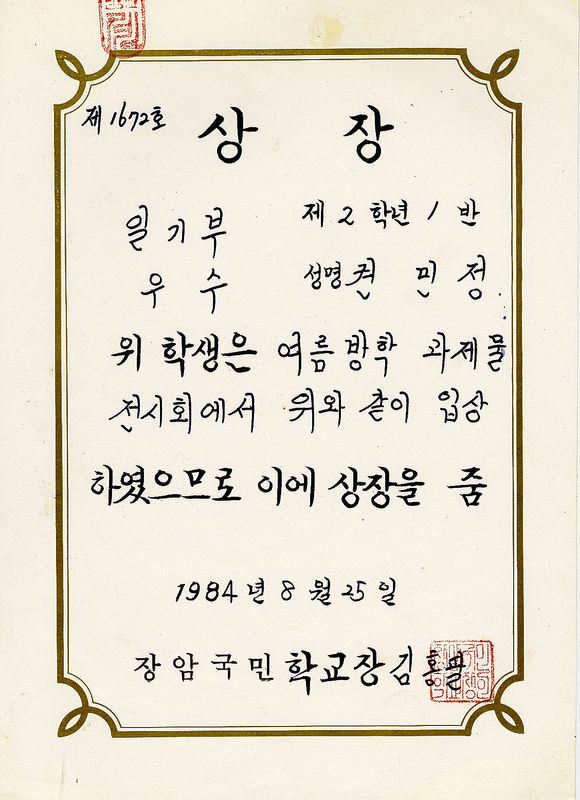 제 1672호
상 장
일기부 제 2 학년 1 반
우 수 성명 권 민 정
위 학생은 여름방학 과제물
전시회에서 위와 같이 입상
하였으므로 이에 상장을 줌
1984년 8월 25일
장암국민학교장 김홍필